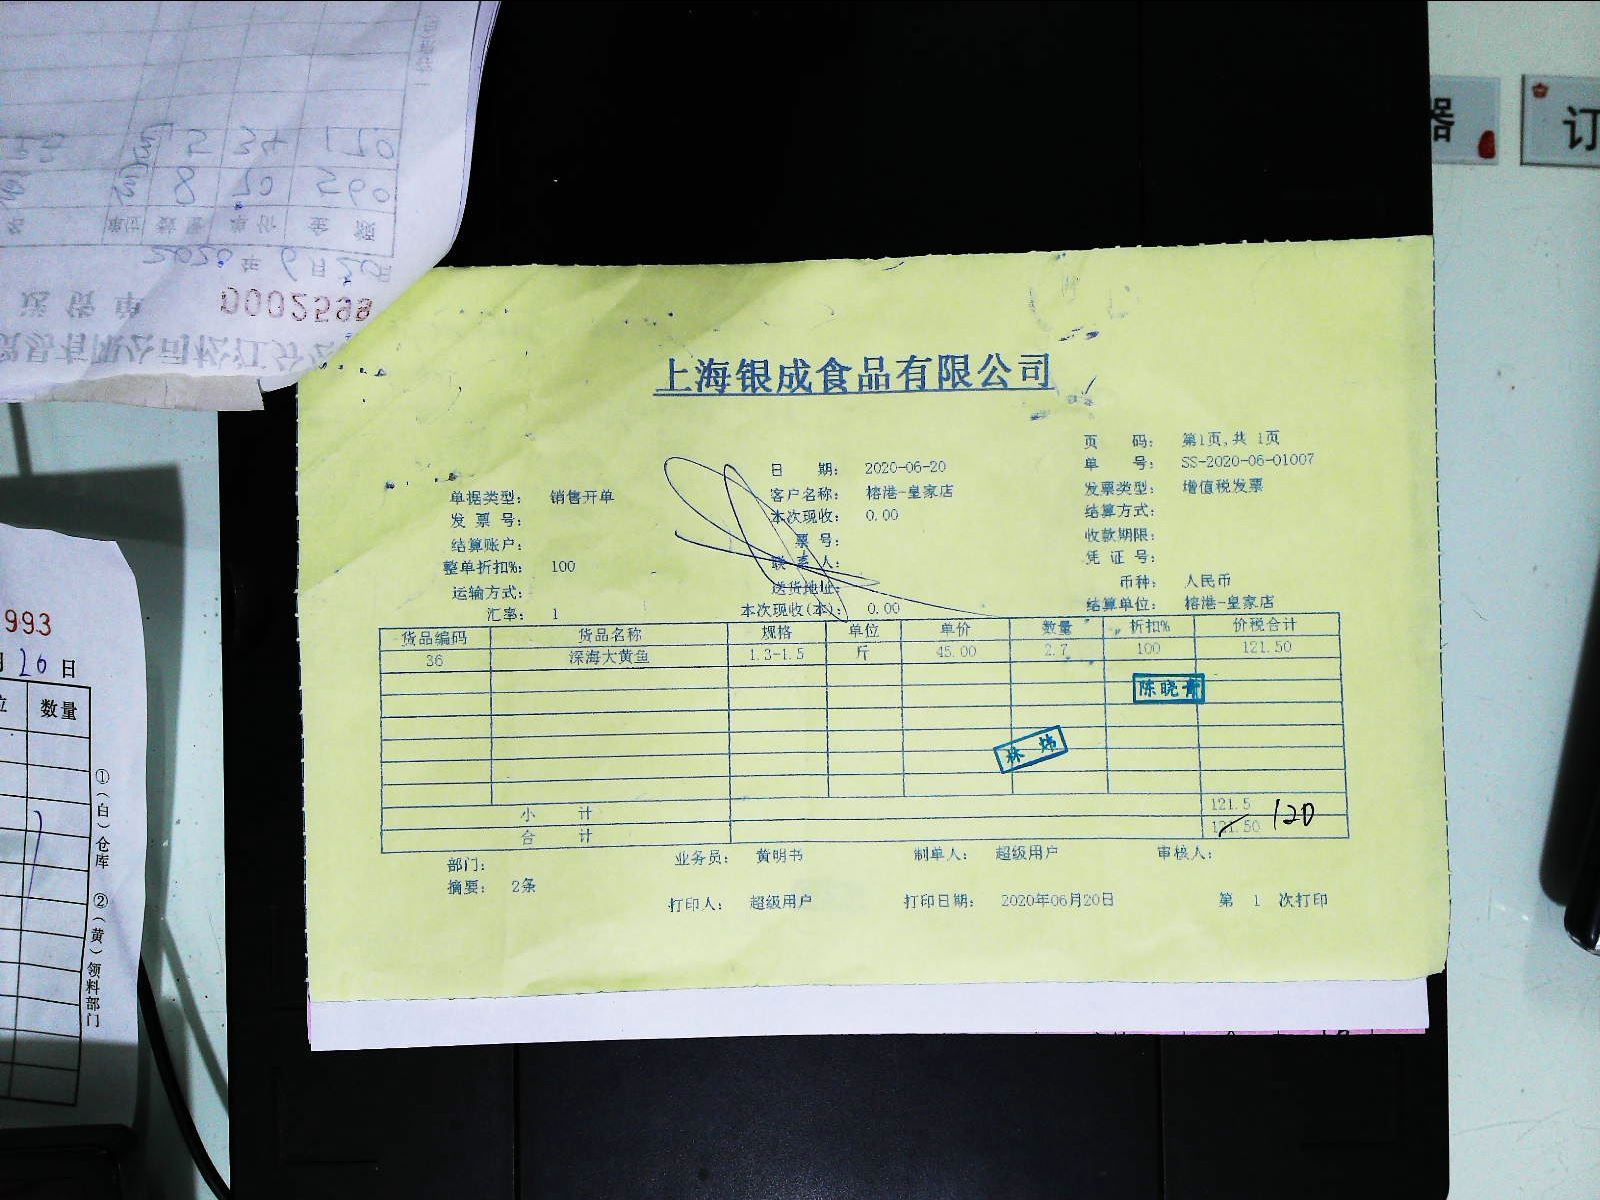 上海银成食品有限公司
页 码: 第1页,共 1页
日 期: 2020-06-20
单 号: SS-2020-06-01007
单据类型: 销售开单
客户名称: 榕港-皇家店
发票类型: 增值税发票
发 票 号:
本次现收: 0.00
结算方式:
结算账户:
票 号:
收款期限:
整单折扣%: 100
联系人:
凭 证 号:
运输方式:
送货地址:
币种: 人民币
汇率: 1
本次现收(本): 0.00
结算单位: 榕港-皇家店
货品编码 货品名称 规格 单位 单价 数量 折扣% 价税合计
36 深海大黄鱼 1.3-1.5 斤 45.00 2.7 100 121.50
陈晓青
林 炜
小 计 121.5
合 计 121.50 120
部门: 业务员: 黄明书 制单人: 超级用户 审核人:
摘要: 2条
打印人: 超级用户 打印日期: 2020年06月20日 第 1 次打印
送货单 0002599
2020年6月20日
单位 数量 单价 金额
8 70 560
5 34 170
993
月20日
位 数量
①(白)仓库 ②(黄)领料部门
器
订